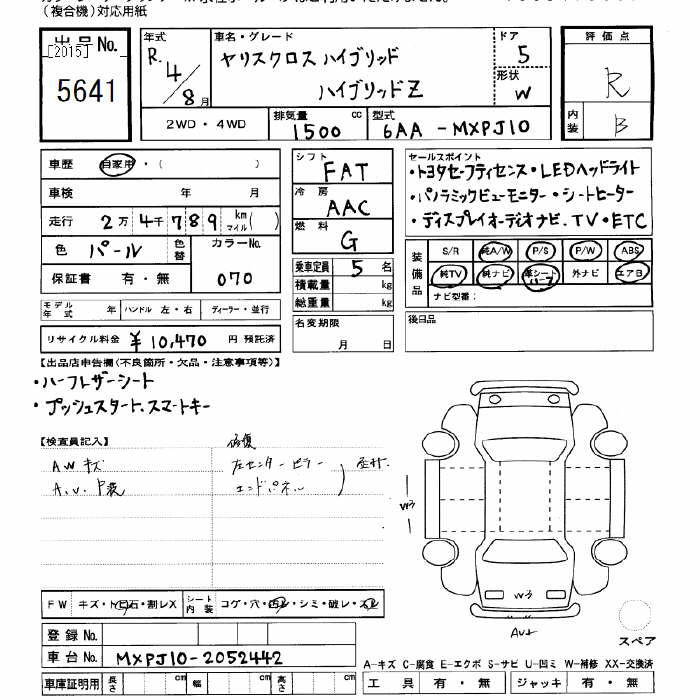 （複合機）対応用紙
出品No.
[2015]
5641
年式 車名・グレード ドア
R.4/8月 ヤリスクロス ハイブリッド 5
ハイブリッドZ 形状 W
評価点
R
内装 B
2WD・4WD 排気量 1500 cc 型式 6AA-MXPJ10
車歴 自家用・( )
車検 年 月
走行 2万4千789 km マイル ( )
色 パール 色替 カラーNo. 070
保証書 有・無
モデル年式 年 ハンドル 左・右 ディーラー・並行
リサイクル料金 ¥10,470 円 預託済
シフト FAT
冷房 AAC
燃料 G
乗車定員 5 名
積載量 kg
総重量 kg
名変期限
月 日
セールスポイント
・トヨタセーフティセンス・LEDヘッドライト
・パノラミックビューモニター・シートヒーター
・ディスプレイオーディオナビ.TV・ETC
装備品 S/R 純A/W P/S P/W ABS
純TV 純ナビ 革シート ハーフ 外ナビ エアB
ナビ型番：
後日品
【出品店申告欄(不良箇所・欠品・注意事項等)】
・ハーフレザーシート
・プッシュスタート.スマートキー
【検査員記入】 修復
AWキズ 左センターピラー
エンドパネル
W3
W3
FW キズ・トビ石・割レX シート内装 コゲ・穴・汚レ・シミ・破レ・スレ
登録No.
車台No. MXPJ10-2052442
車庫証明用 長さ cm 幅 cm 高さ cm
スペア
A-キズ C-腐食 E-エクボ S-サビ U-凹ミ W-補修 XX-交換済
工具 有・無 ジャッキ 有・無